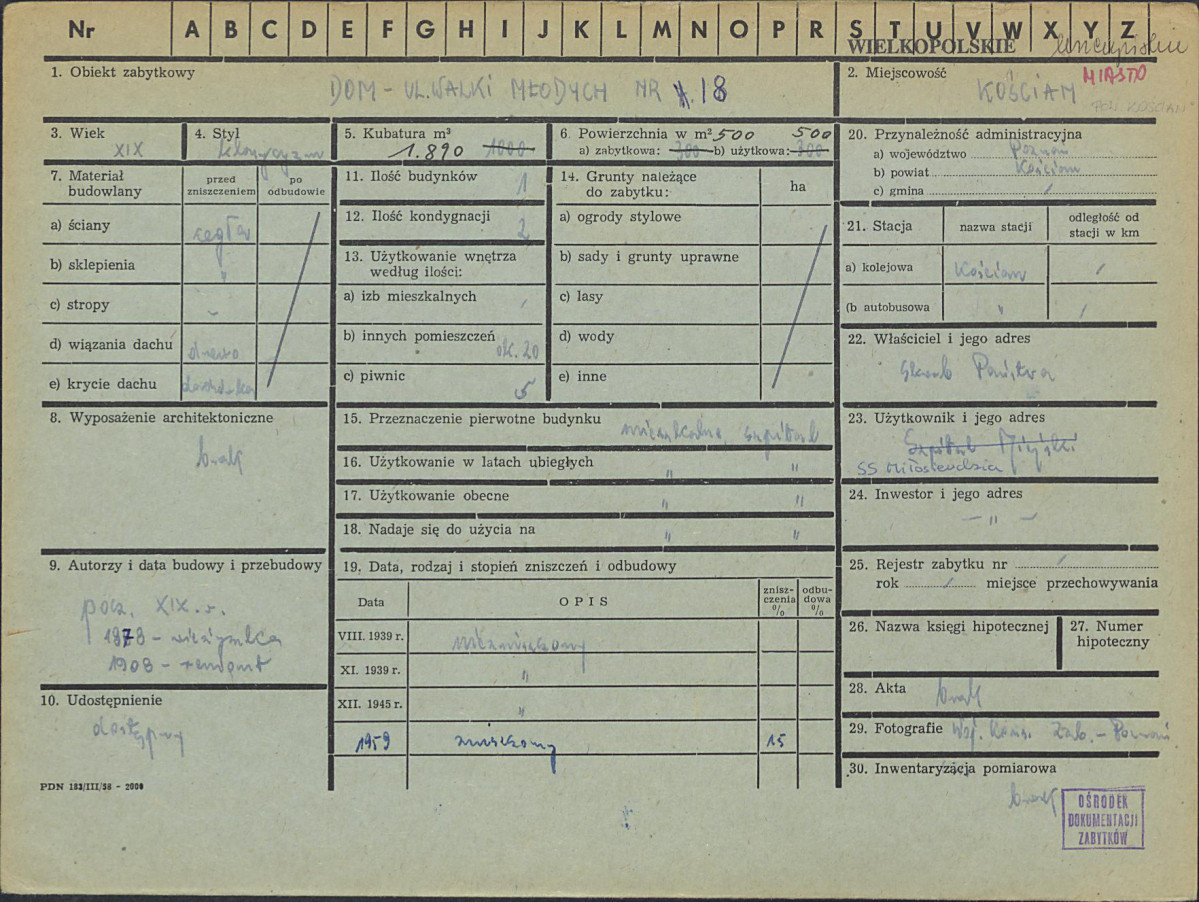 Nr A B C D E F G H I J K L M N O P R S T U V W X Y Z
WIELKOPOLSKIE
1. Obiekt zabytkowy
DOM - UL. WALKI MŁODYCH NR 18
2. Miejscowość
MIASTO
KOŚCIAN
POW. KOŚCIAN
3. Wiek
XIX
4. Styl
klasycyzm
5. Kubatura m³
1.890 1000
6. Powierzchnia w m² 500 500
a) zabytkowa: 300 b) użytkowa: 300
20. Przynależność administracyjna
a) województwo Poznań
b) powiat Kościan
c) gmina /
7. Materiał budowlany
przed zniszczeniem
po odbudowie
a) ściany cegła
b) sklepienia "
c) stropy -
d) wiązania dachu drewno
e) krycie dachu dachówka
11. Ilość budynków 1
12. Ilość kondygnacji 2
13. Użytkowanie wnętrza
według ilości:
a) izb mieszkalnych /
b) innych pomieszczeń ok. 20
c) piwnic 5
14. Grunty należące
do zabytku:
ha
a) ogrody stylowe
b) sady i grunty uprawne
c) lasy
d) wody
e) inne
21. Stacja
nazwa stacji
odległość od
stacji w km
a) kolejowa Kościan /
(b autobusowa " /
22. Właściciel i jego adres
Skarb Państwa
8. Wyposażenie architektoniczne
brak
15. Przeznaczenie pierwotne budynku mieszkalne, szpital
16. Użytkowanie w latach ubiegłych " "
17. Użytkowanie obecne " "
18. Nadaje się do użycia na " "
23. Użytkownik i jego adres
Szpital Miejski
SS Miłosierdzia
24. Inwestor i jego adres
- " -
9. Autorzy i data budowy i przebudowy
pocz. XIX w.
1878 -
1908 - remont
19. Data, rodzaj i stopień zniszczeń i odbudowy
Data
OPIS
znisz-
czenia
%
odbu-
dowa
%
VIII. 1939 r. niezniszczony
XI. 1939 r. "
XII. 1945 r. "
1959 zniszczony 15
25. Rejestr zabytku nr /
rok / miejsce przechowywania
26. Nazwa księgi hipotecznej
27. Numer
hipoteczny
10. Udostępnienie
dostępny
28. Akta brak
29. Fotografie Woj. Kons. Zab. - Poznań
30. Inwentaryzacja pomiarowa
brak
PDN 183/III/58 - 2000
OŚRODEK
DOKUMENTACJI
ZABYTKÓW